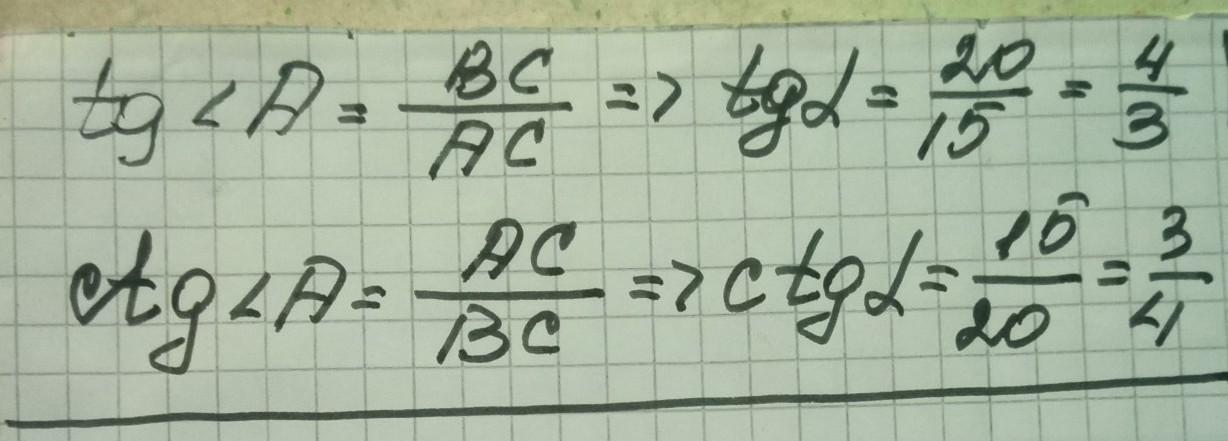 tg ∠A = BC/AC => tg α = 20/15 = 4/3
ctg ∠A = AC/BC => ctg α = 15/20 = 3/4